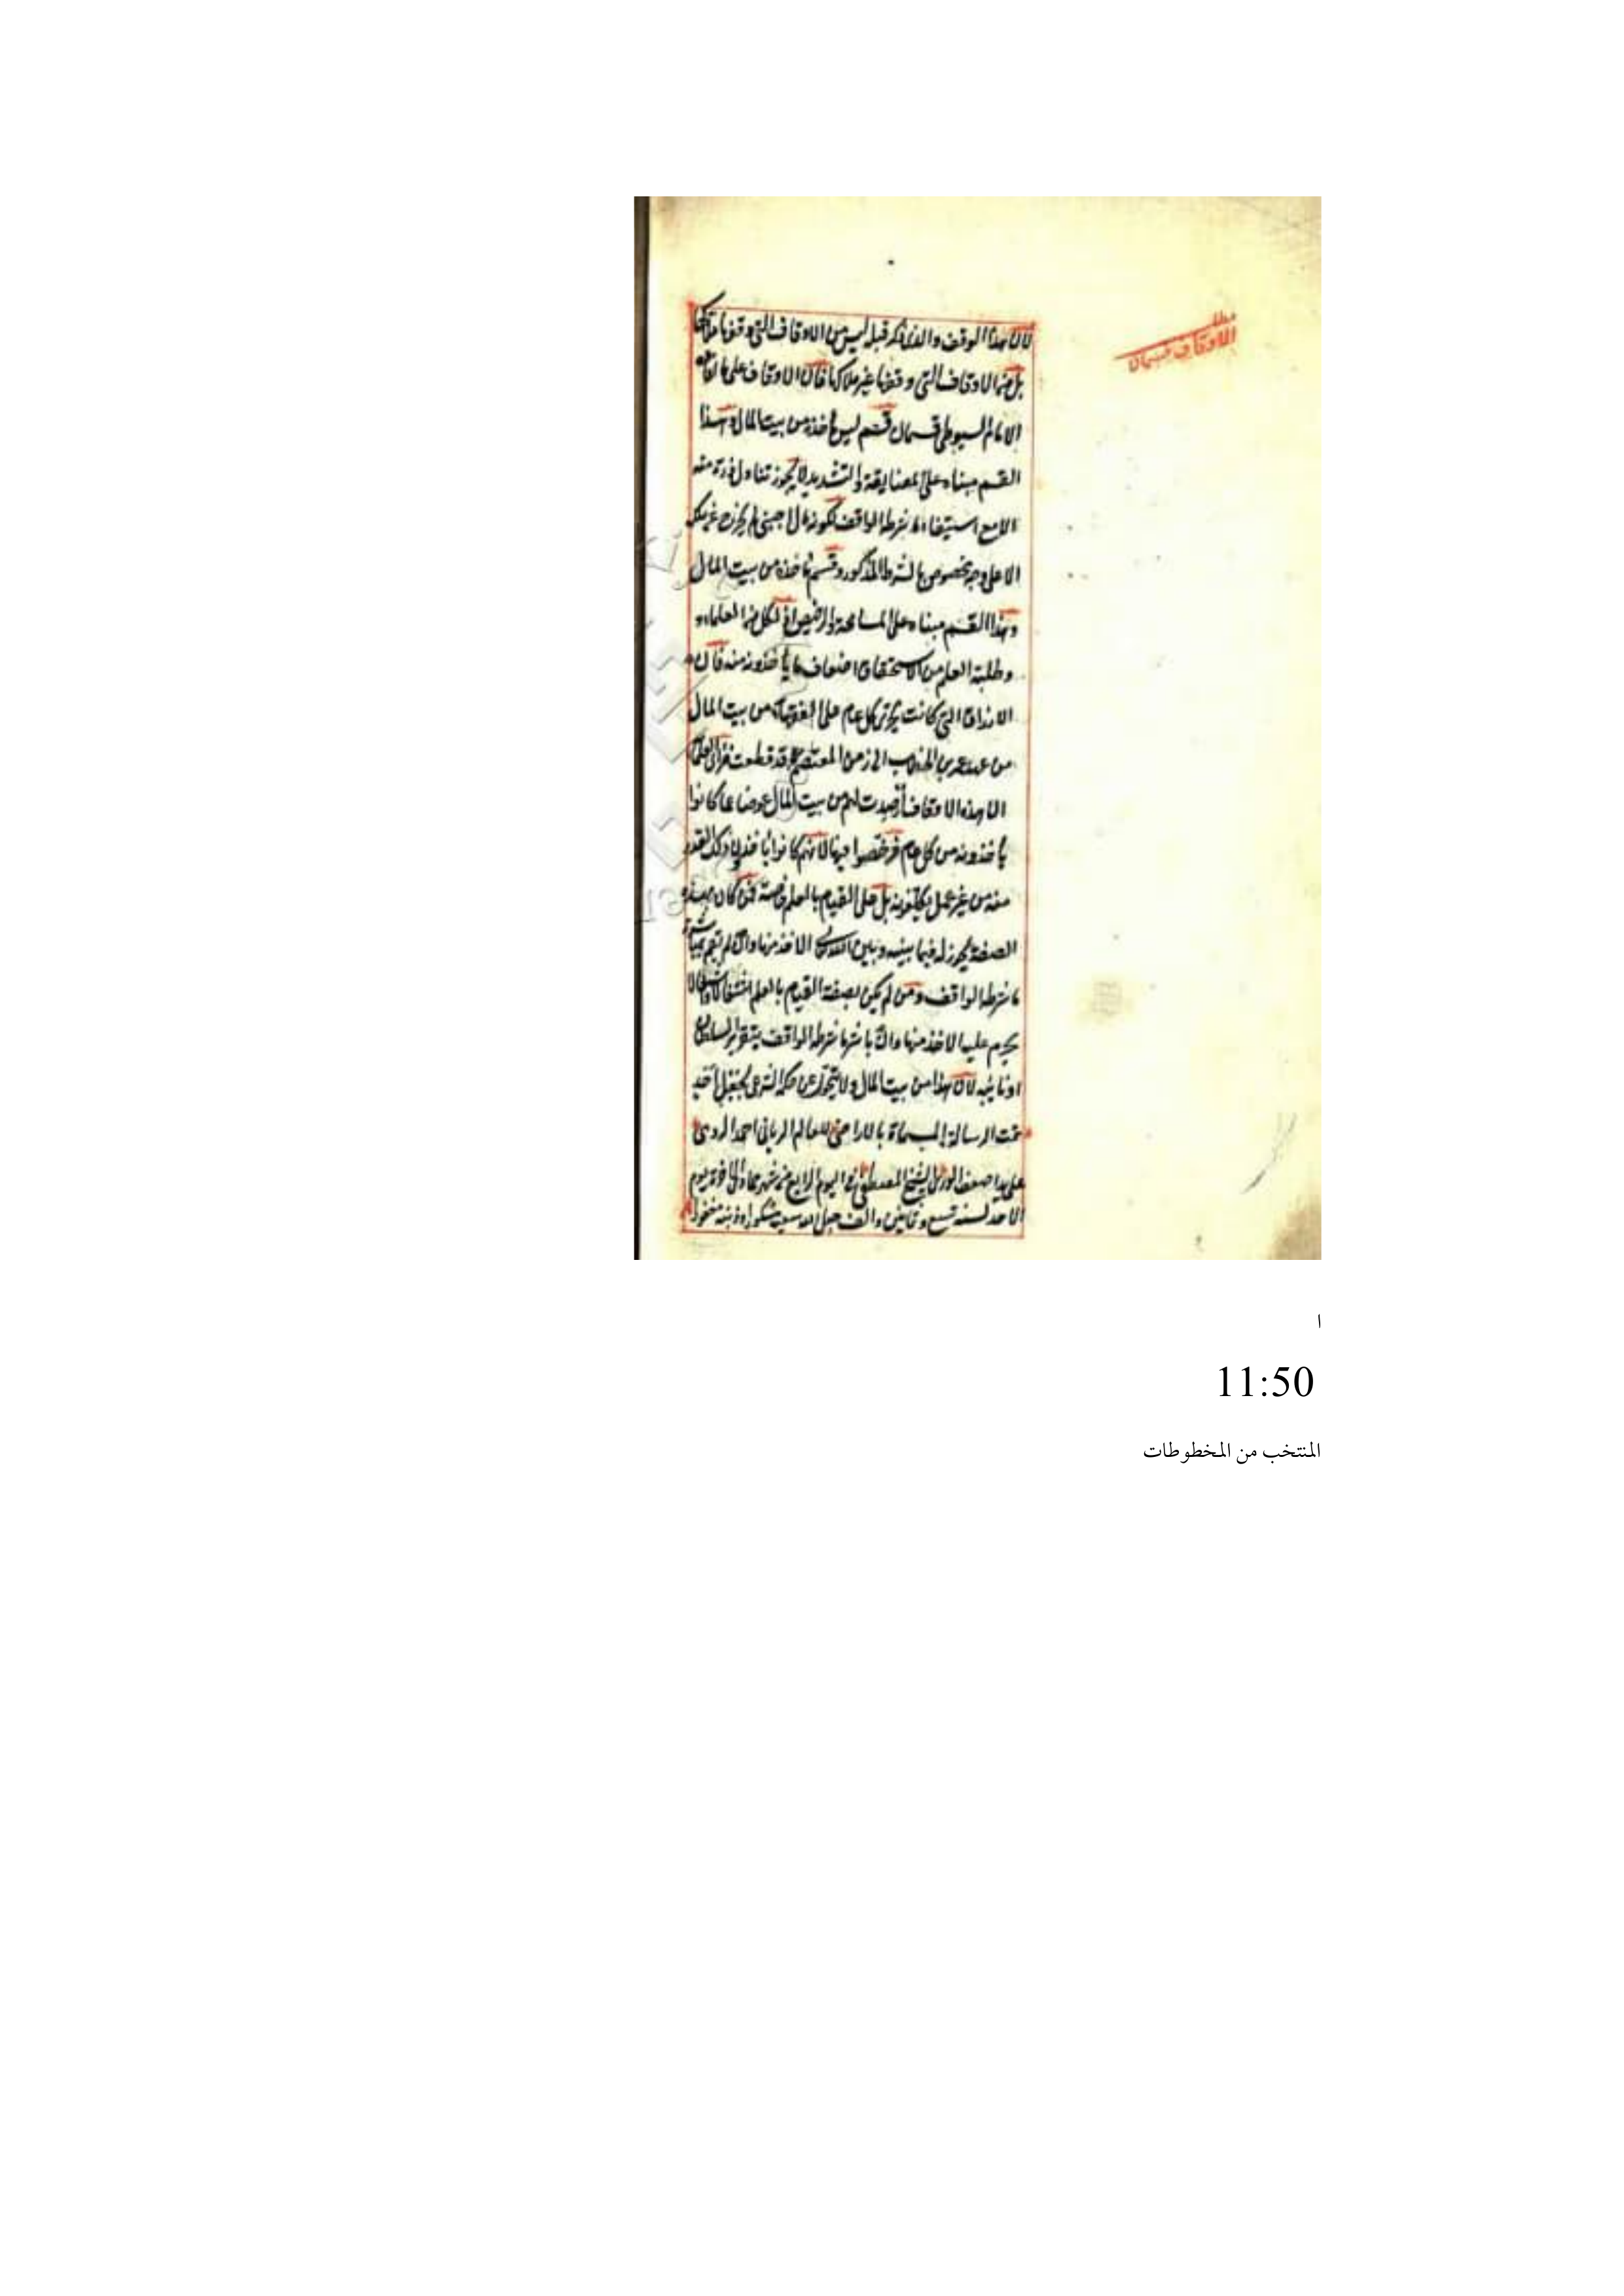 مطلب
الاوقاف قسمان
لان هذا الوقف والذي ذكر قبله ليس من الاوقاف التي وقفها ملاكها
بل من الاوقاف التي وقفها غير ملاكها فان الاوقاف على ما قاله
الامام السيوطي قسمان قسم ليس مأخذه من بيت المال وهذا
القسم مبناه على المضايقة والتشديد لا يجوز تناول ذرة منه
الا مع استيفاء ما شرطه الواقف لكونه مال اجنبي لم يخرج عن ملكه
الا على وجه مخصوص بالشرط المذكور وقسم مأخذه من بيت المال
وهذا القسم مبناه على المسامحة والترخيص اذ لكل من العلماء و
وطلبة العلم من الاستحقاق اضعاف ما يأخذونه منه فان
الارزاق التي كانت تجري كل عام على الفقهاء من بيت المال
من عهد عمر بن الخطاب الى زمن المعتصم قد قطعت
الا هذه الاوقاف ارصدت لهم من بيت المال عوضا عما كانوا
يأخذونه من كل عام فرخصوا فيها لانهم كانوا يأخذون ذلك القدر
منه من غير عمل يكلفونه بل على القيام بالعلم خاصة فمن كان بهذه
الصفة يجوز له فيما بينه وبين الله الاخذ منها وان لم يقم بمباشرة
ما شرطه الواقف ومن لم يكن بصفة القيام بالعلم اشتغالا واشغالا
يحرم عليه الاخذ منها وان باشر ما شرطه الواقف بتقرير السلطان
او نائبه لان هذا من بيت المال ولا يتحول عن حكمه الشرعي بجعل احد
تمت الرسالة المسماة للعالم الرباني احمد الرومي
على يد اضعف الورى الشيخ المصطفى في اليوم الرابع من شهر جمادى الاخرة يوم
الاحد لسنة تسع وثمانين والف جعل الله سعيه مشكورا وذنبه مغفورا
ا
11:50
المنتخب من المخطوطات